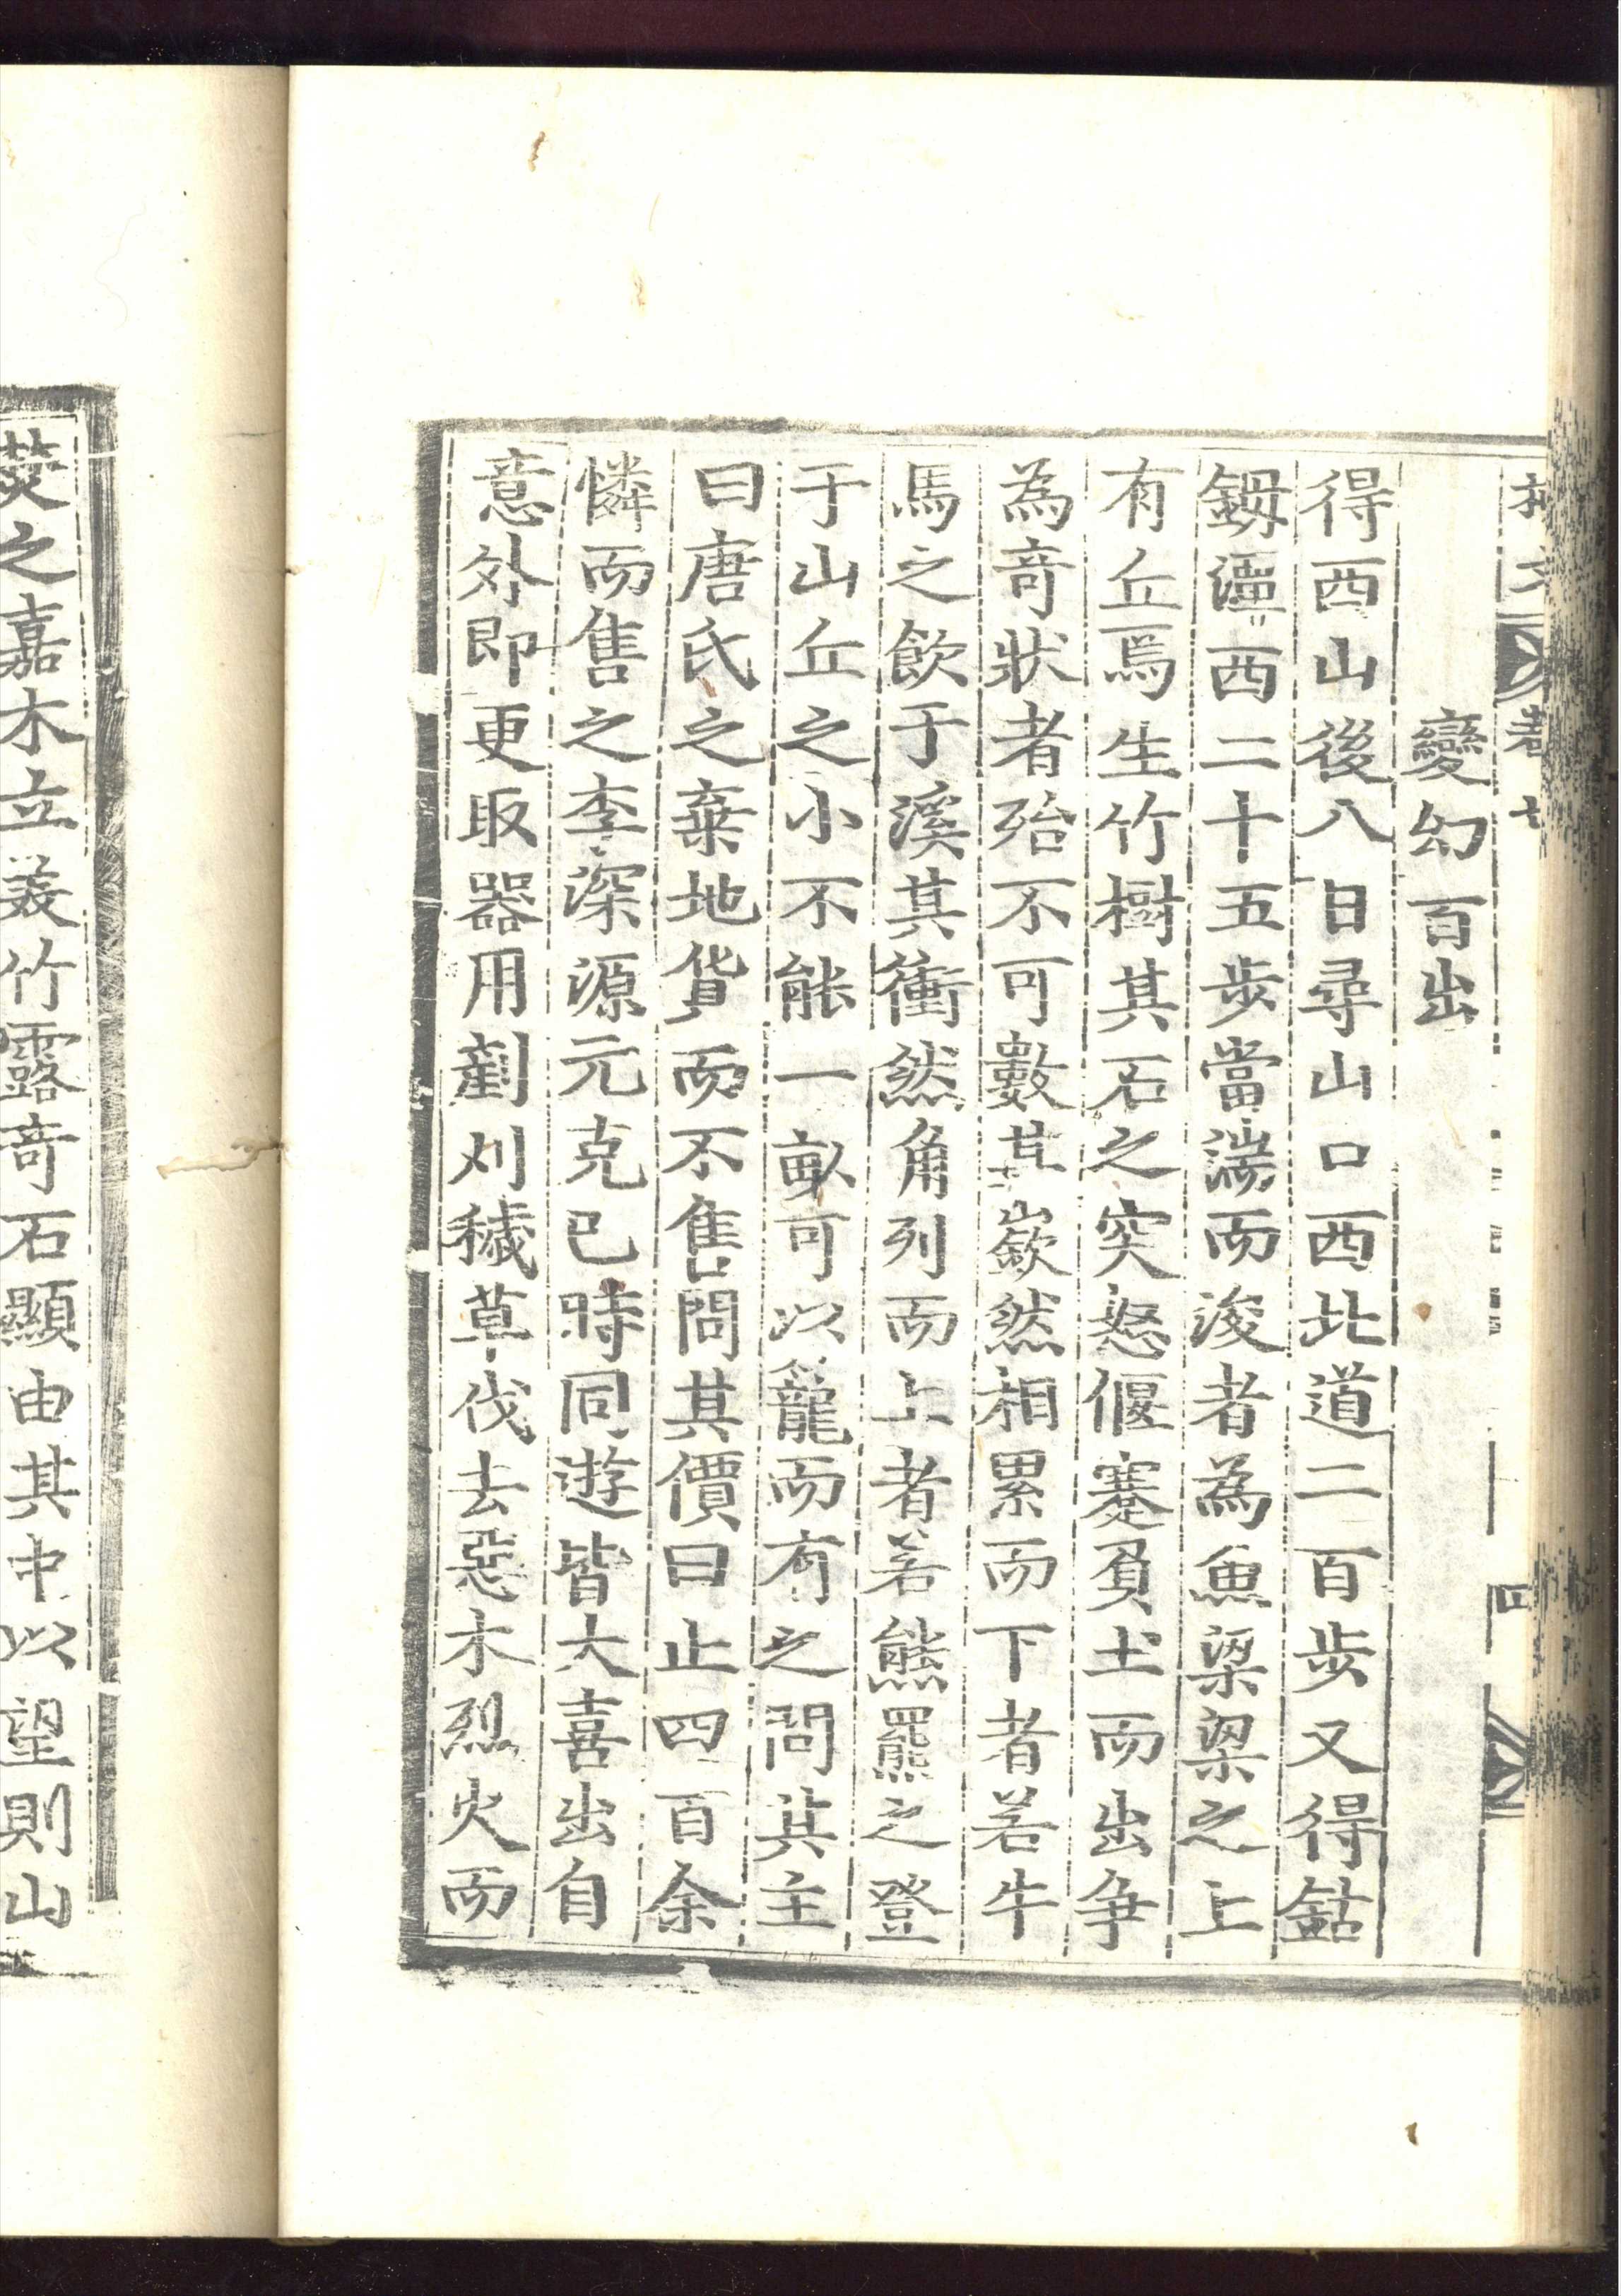 柳文 卷七 四
變幻百出
得西山後八日尋山口西北道二百步又得鈷
鉧潭西二十五步當湍而浚者為魚梁梁之上
有丘焉生竹樹其石之突怒偃蹇負土而出爭
為奇狀者殆不可數其嶔然相累而下者若牛
馬之飲于溪其衝然角列而上者若熊羆之登
于山丘之小不能一畝可以籠而有之問其主
曰唐氏之棄地貨而不售問其價曰止四百余
憐而售之李深源元克已時同遊皆大喜出自
意外即更取器用剷刈穢草伐去惡木烈火而
焚之嘉木立美竹露奇石顯由其中以望則山